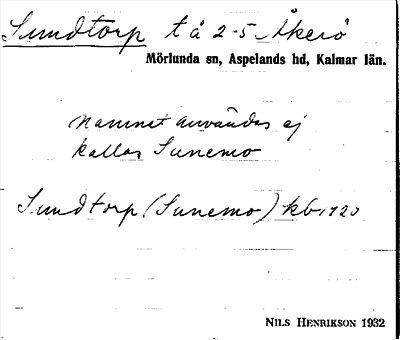 Sundtorp t å 2-5 Åkerö
Mörlunda sn, Aspelands hd, Kalmar län.
Namnet användes ej
kallas Sunemo
Sundtorp (Sunemo) kb 1720
NILS HENRIKSON 1932